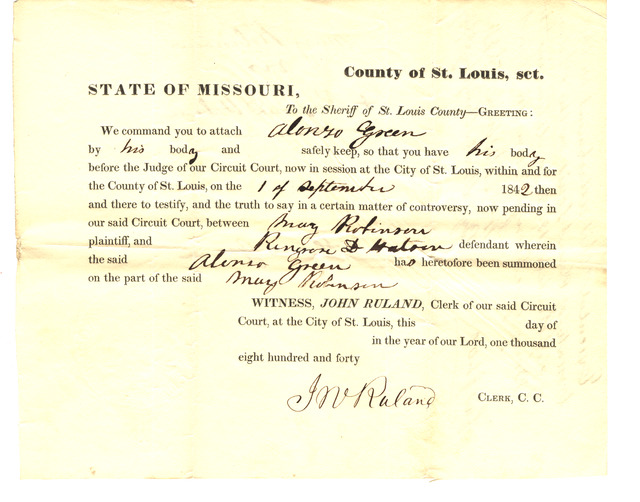 County of St. Louis, sct.
STATE OF MISSOURI,
To the Sheriff of St. Louis County—GREETING:
We command you to attach Alonzo Green
by his body and safely keep, so that you have his body
before the Judge of our Circuit Court, now in session at the City of St. Louis, within and for
the County of St. Louis, on the 1 of September 1842 then
and there to testify, and the truth to say in a certain matter of controversy, now pending in
our said Circuit Court, between Mary Robinson
plaintiff, and D Watson defendant wherein
the said Alonzo Green has heretofore been summoned
on the part of the said Mary Robinson
WITNESS, JOHN RULAND, Clerk of our said Circuit
Court, at the City of St. Louis, this day of
in the year of our Lord, one thousand
eight hundred and forty
J W Ruland CLERK, C. C.